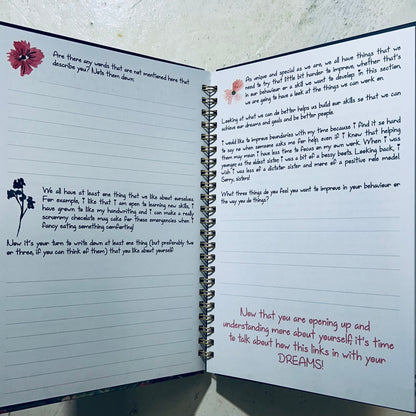 Are there any words that are not mentioned here that
describe you? Note them down:
We all have at least one thing that we like about ourselves.
For example, I like that I am open to learning new skills, I
have grown to like my handwriting and I can make a really
scrummy chocolate mug cake for these emergencies when I
fancy eating something comforting!
Now it's your turn to write down at least one thing (but preferably two
or three, if you can think of them) that you like about yourself:
As unique and special as we are, we all have things that we
need to try that little bit harder to improve, whether that's
in our behaviour or a skill we want to develop. In this section,
are going to have a look at the things we can work on.
Looking at what we can do better helps us build our skills so that we can
achieve our dreams and goals and be better people.
I would like to improve boundaries with my time because I find it so hard
to say no when someone asks me for help, even if I know that helping
them may mean I have less time to focus on my own work. When I was
younger, as the oldest sister, I was a bit of a bossy boots. Looking back, I
wish I was less of a dictator sister and more of a positive role model.
Sorry, sisters!
What three things do you feel you want to improve in your behaviour or
the way you do things?
Now that you are opening up and
understanding more about yourself, it's time
to talk about how this links in with your
DREAMS!